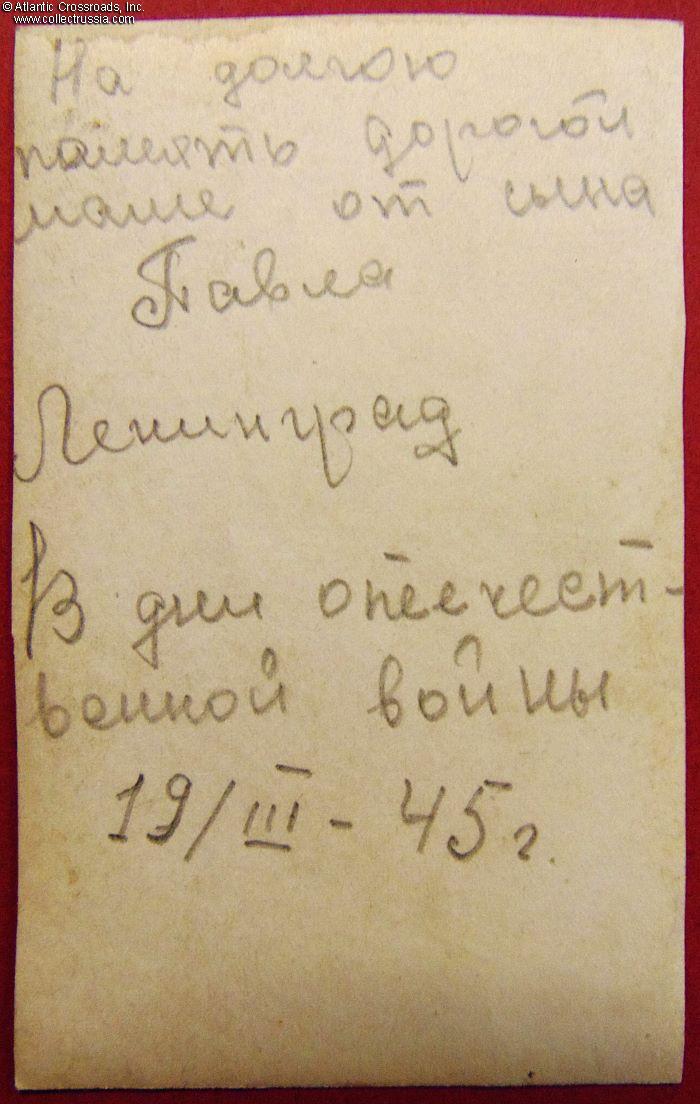 © Atlantic Crossroads, Inc.
www.collectrussia.com
На долгою
память дорогой
маме от сына
Павла
Ленинград
В дни отечест-
венной войны
19/III - 45 г.